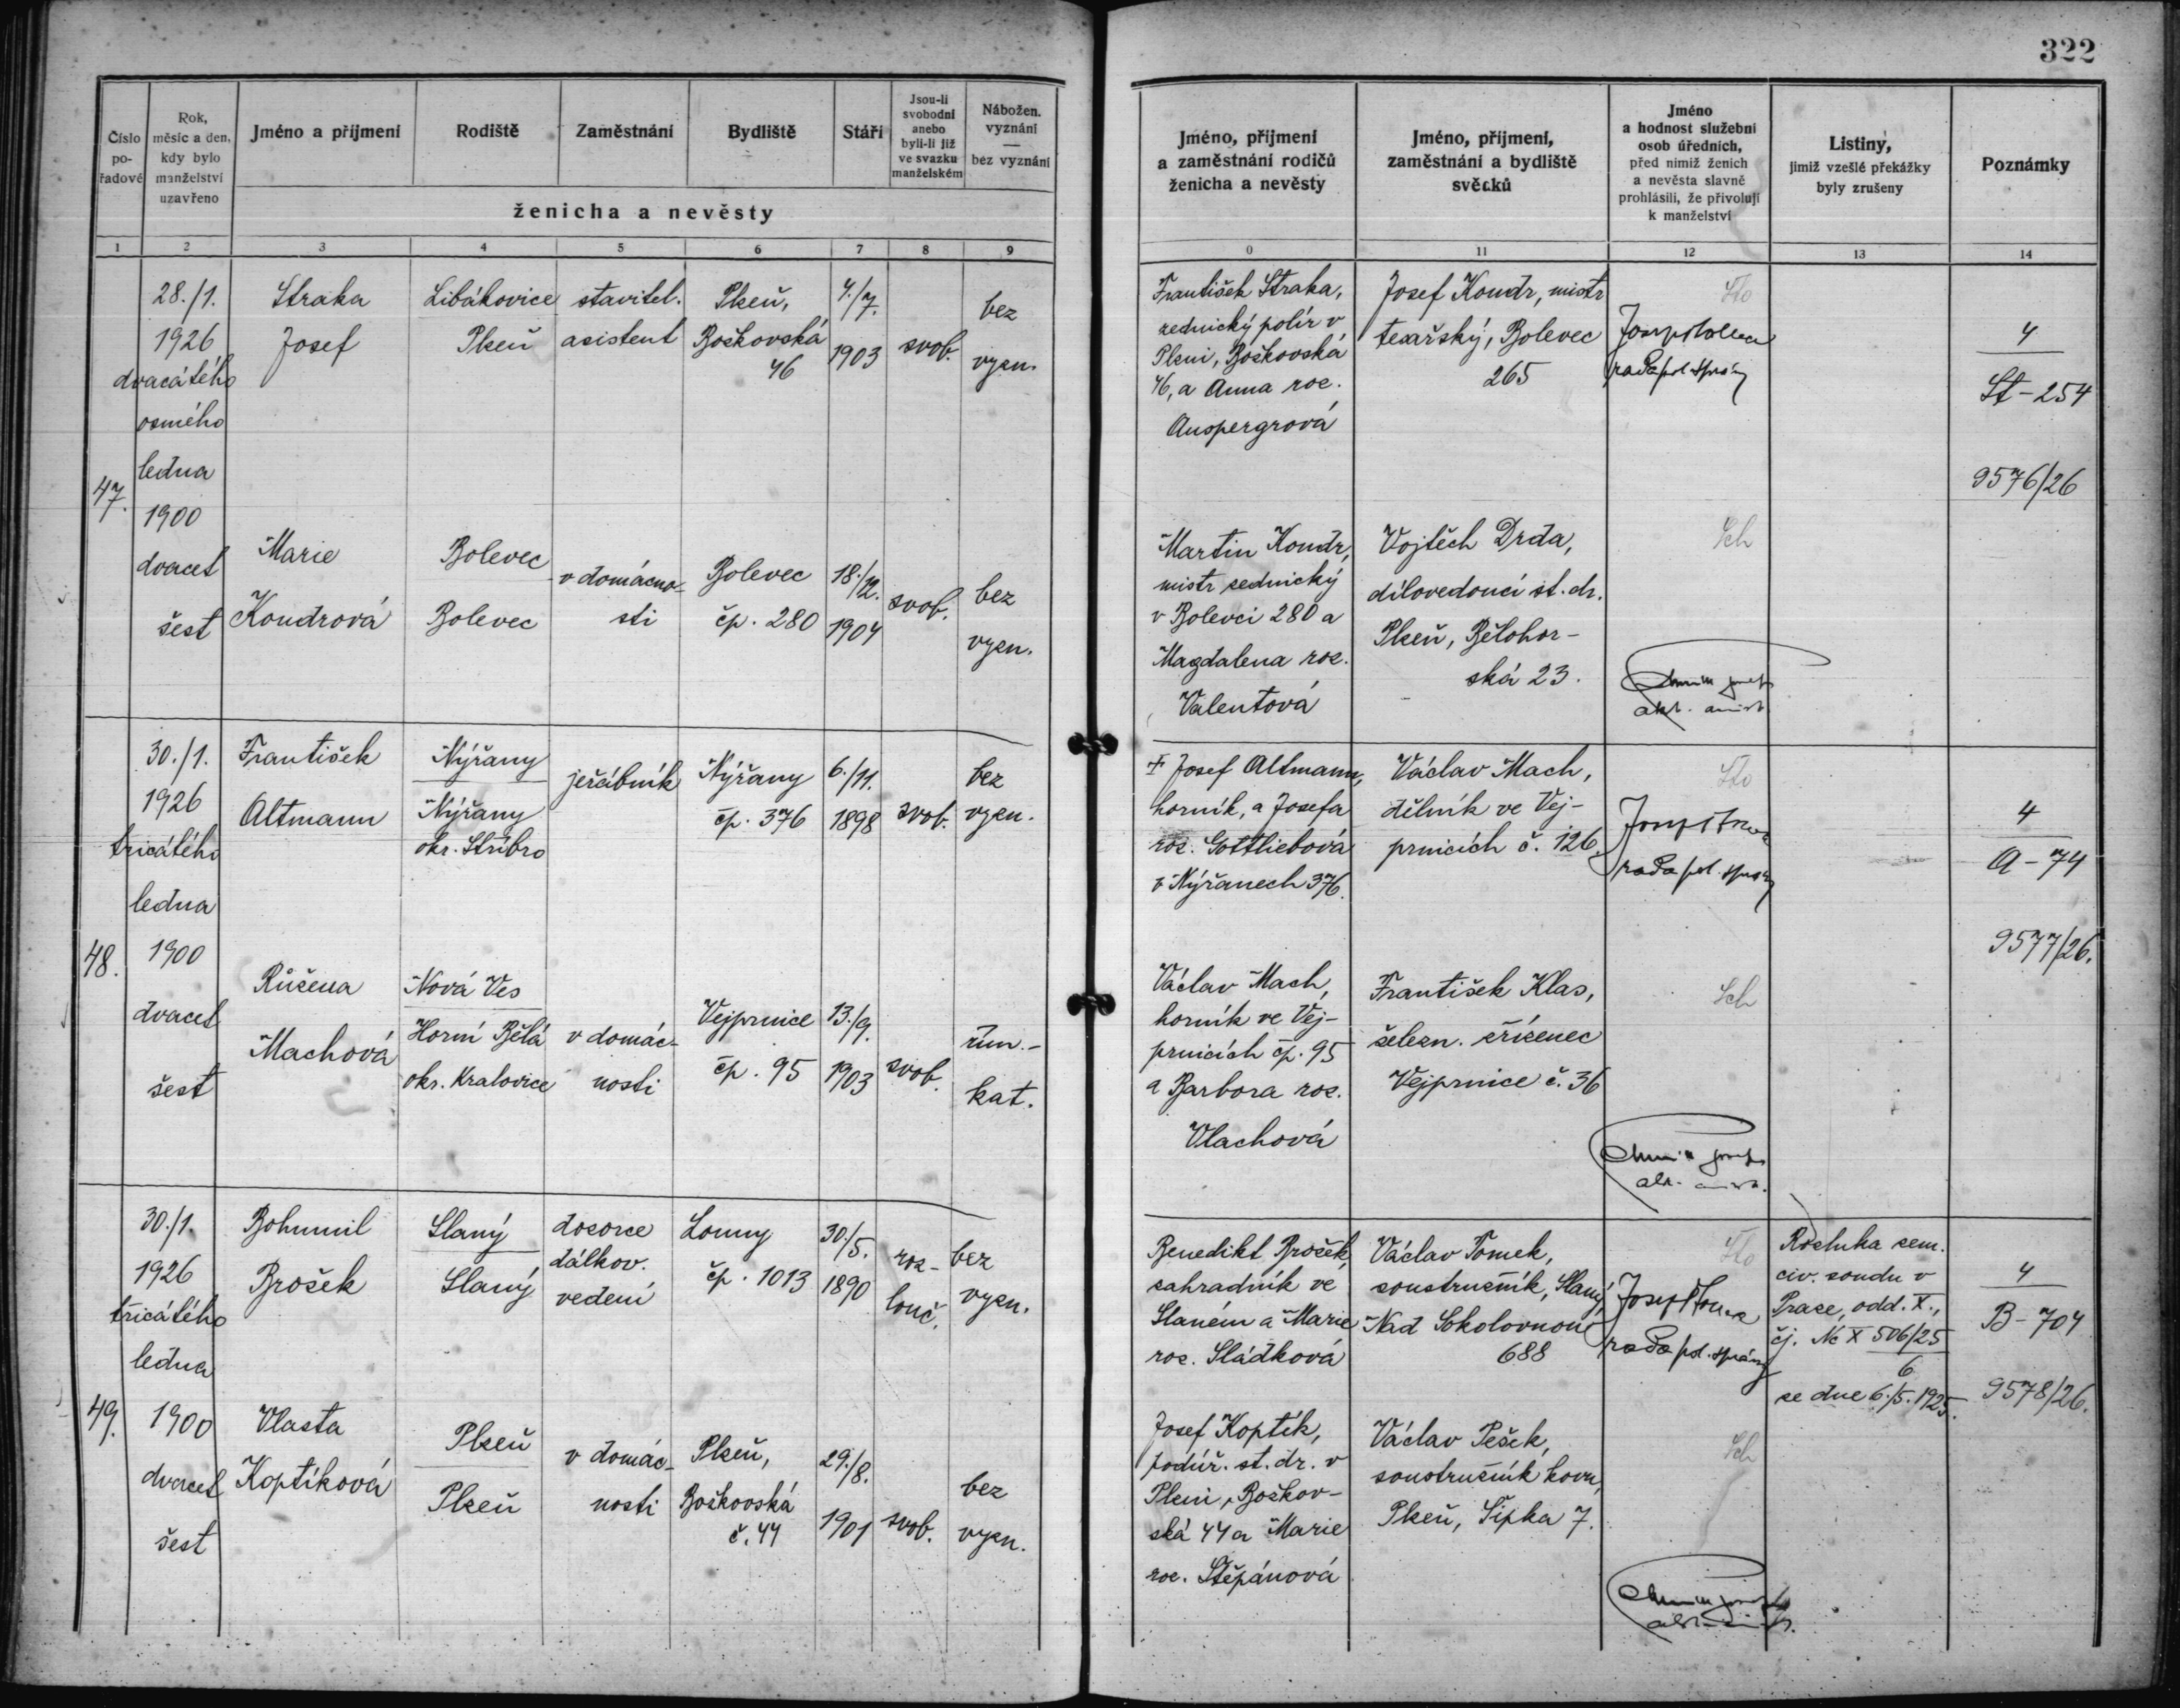 322
Číslo pořadové
Rok, měsíc a den, kdy bylo manželství uzavřeno
Jméno a příjmení
Rodiště
Zaměstnání
Bydliště
Stáří
Jsou-li svobodní anebo byli-li již ve svazku manželském
Nábožen. vyznání — bez vyznání
ženicha a nevěsty
Jméno, příjmení a zaměstnání rodičů ženicha a nevěsty
Jméno, příjmení, zaměstnání a bydliště svědků
Jméno a hodnost služební osob úředních, před nimiž ženich a nevěsta slavně prohlásili, že přivolují k manželství
Listiny, jimiž vzešlé překážky byly zrušeny
Poznámky
1 2 3 4 5 6 7 8 9 0 11 12 13 14
47.
28./1.
1926
dvacátého
osmého
ledna
1900
dvacet
šest
Straka
Josef
Libákovice
Plzeň
stavitel.
asistent
Plzeň,
Božkovská
46
4./7.
1903
svob.
bez
vyzn.
František Straka,
zednický polír v
Plzni, Božkovská
46, a Anna roz.
Auspergrová
Josef Kondr, mistr
tesařský, Bolevec
265
rada pol. správy
4
St-254
9576/26
Marie
Kondrová
Bolevec
Bolevec
v domácno-
sti
Bolevec
čp. 280
18./12.
1904
svob.
bez
vyzn.
Martin Kondr,
mistr zednický
v Bolevci 280 a
Magdalena roz.
Valentová
Vojtěch Drda,
dílovedoucí st. dr.
Plzeň, Bělohor-
ská 23.
Sch
48.
30./1.
1926
třicátého
ledna
1900
dvacet
šest
František
Altmann
Nýřany
Nýřany
okr. Stříbro
jeřábník
Nýřany
čp. 376
6./11.
1898
svob.
bez
vyzn.
+ Josef Altmann,
horník, a Josefa
roz. Gottliebová
v Nýřanech 376.
Václav Mach,
dělník ve Vej-
prnicích č. 126.
rada pol. správy
4
A-74
9577/26.
Růžena
Machová
Nová Ves
Horní Bělá
okr. Kralovice
v domác-
nosti
Vejprnice
čp. 95
13./9.
1903
svob.
řím.-
kat.
Václav Mach,
horník ve Vej-
prnicích čp. 95
a Barbora roz.
Vlachová
František Klas,
železn. zřízenec
Vejprnice č. 36
Sch
49.
30./1.
1926
třicátého
ledna
1900
dvacet
šest
Bohumil
Brošek
Slaný
Slaný
dozorce
dálkov.
vedení
Louny
čp. 1013
30./5.
1890
roz-
louč.
bez
vyzn.
Benedikt Brošek,
zahradník ve
Slaném a Marie
roz. Sládková
Václav Tomek,
soustružník, Slaný,
Nad Sokolovnou
688
rada pol. správy
Rozluka zem.
civ. soudu v
Praze, odd. X.,
čj. Nc X 506/25
6
ze dne 6./5. 1925.
4
B-704
9578/26.
Vlasta
Koptíková
Plzeň
Plzeň
v domác-
nosti
Plzeň,
Božkovská
č. 44
29./8.
1901
svob.
bez
vyzn.
Josef Koptík,
podúř. st. dr. v
Plzni, Božkov-
ská 44 a Marie
roz. Štěpánová
Václav Pešek,
soustružník kovu,
Plzeň, Šipka 7.
Sch